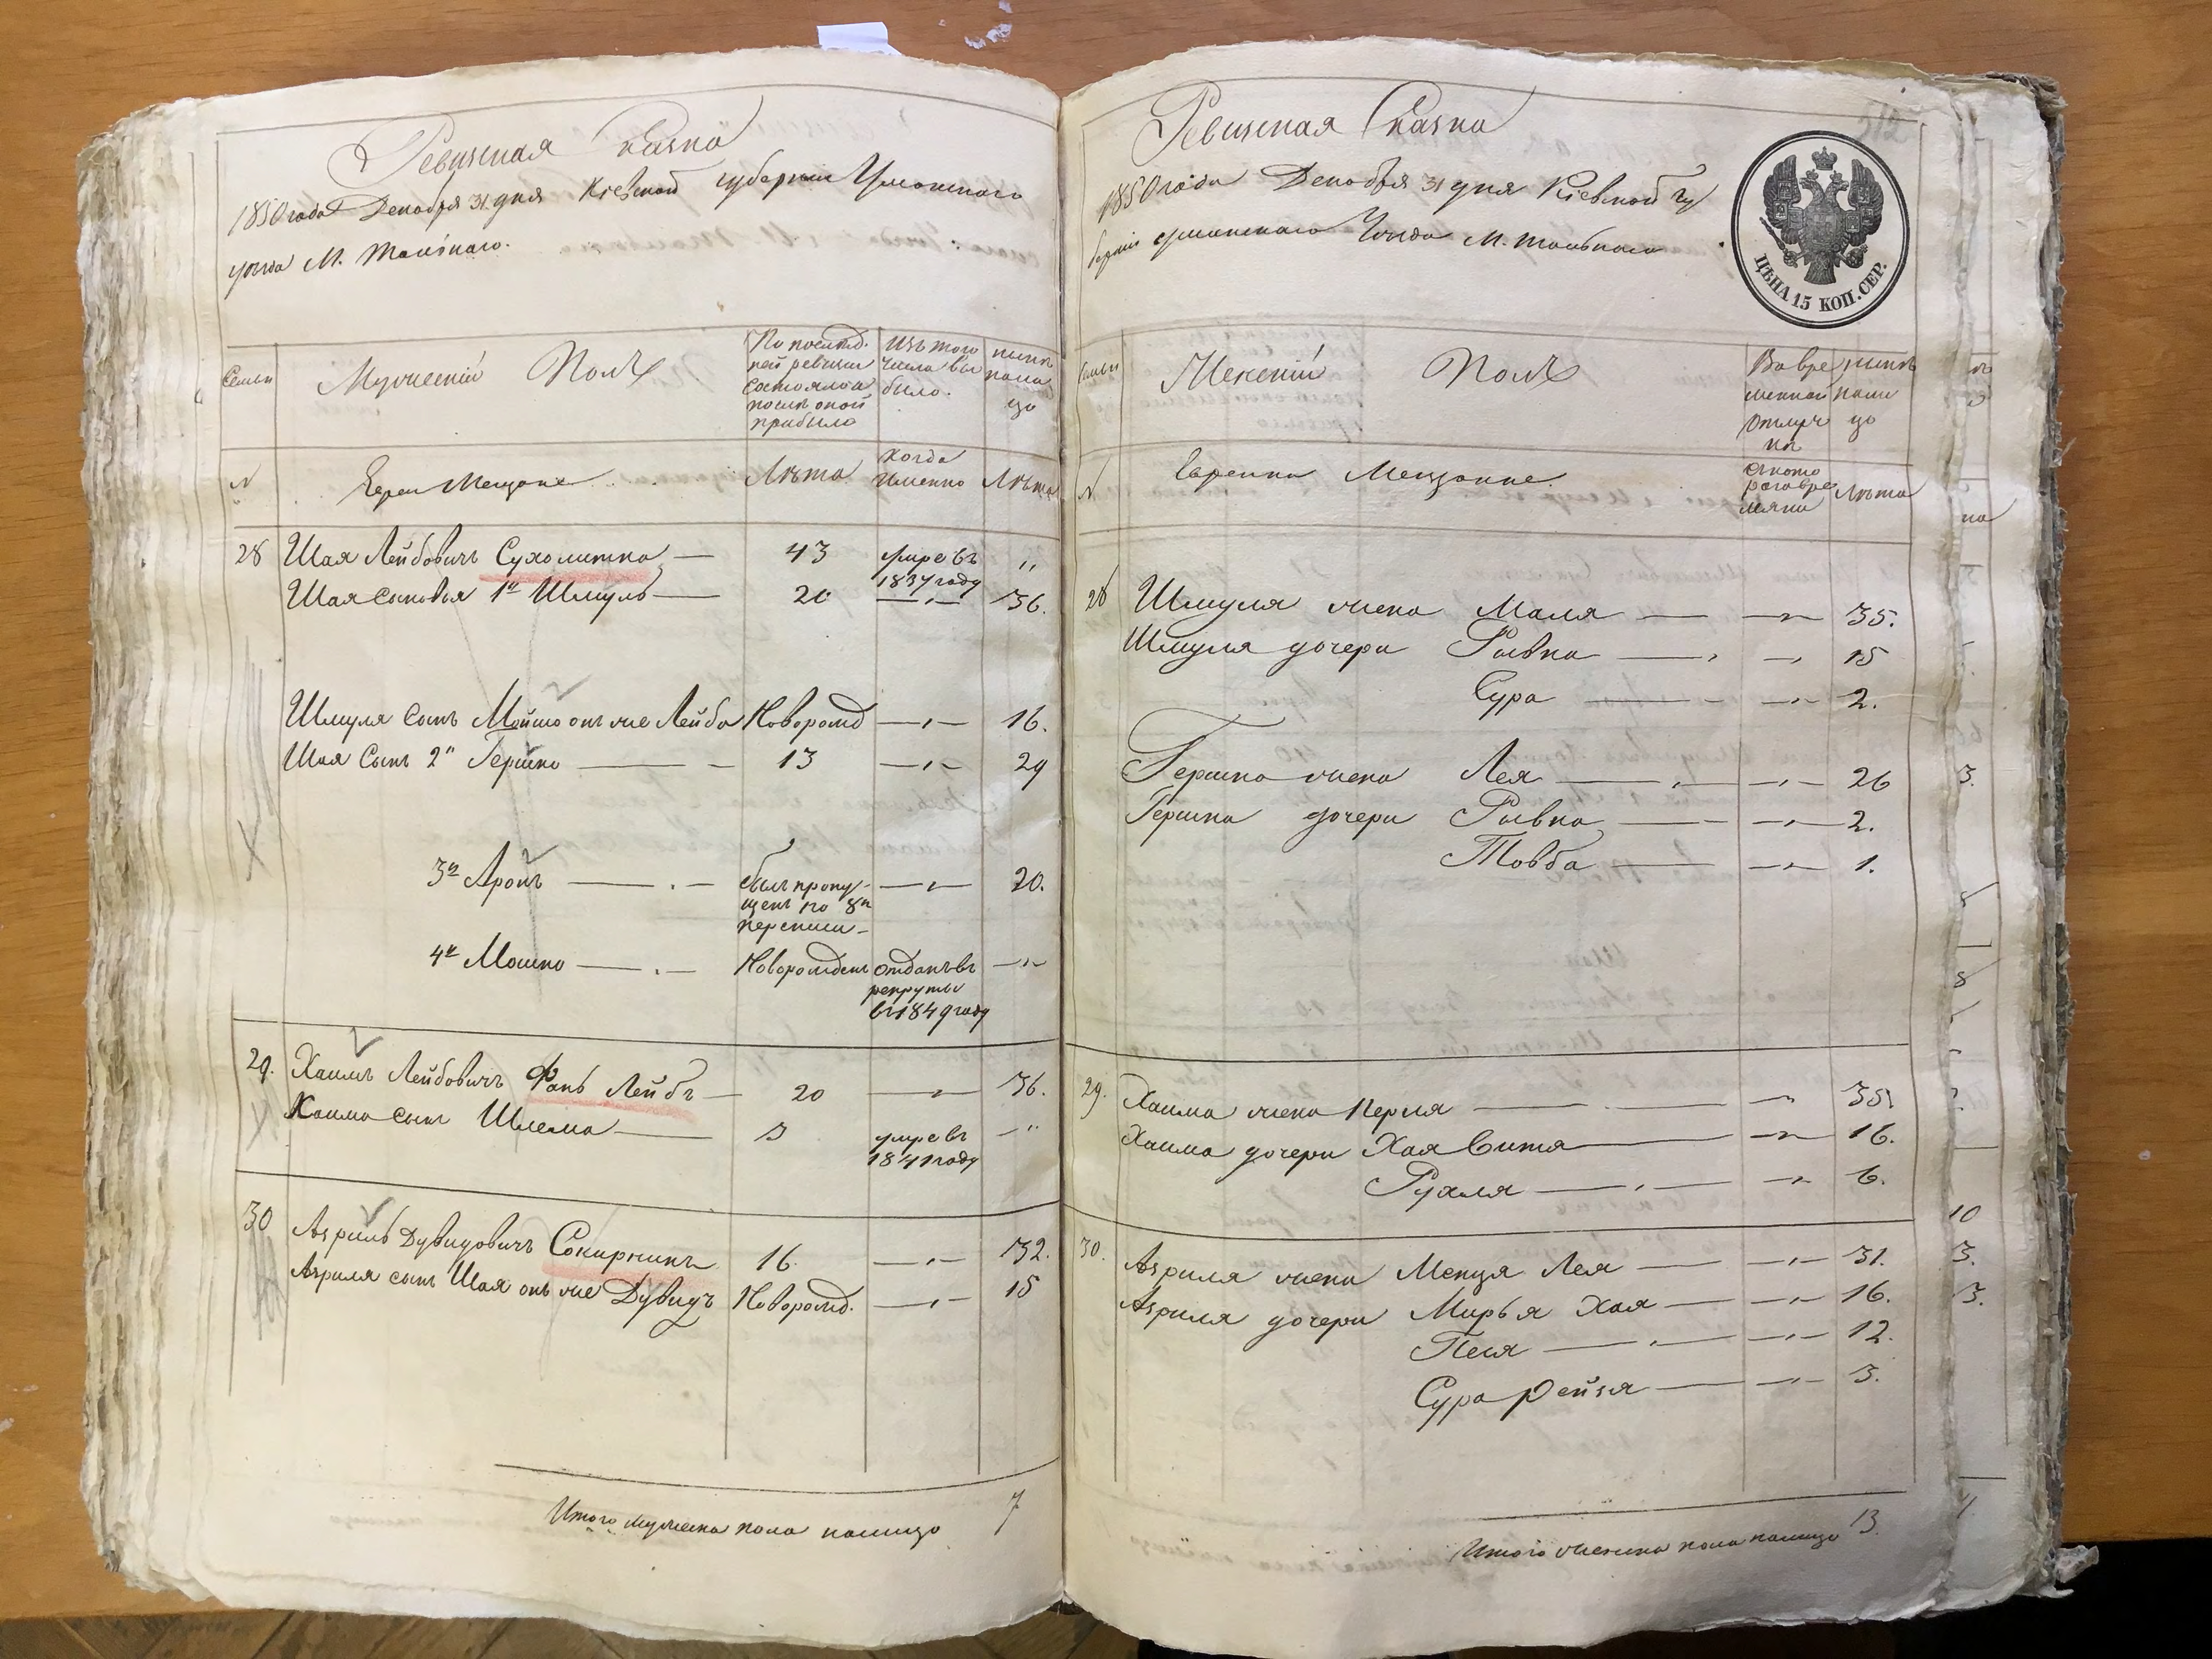 Ревизская Сказка
1850 года Декабря 31 дня Кіевской губерніи Уманского
уезда М. Тального.
Семьи
Мужескій Полъ
По послѣд-
ней ревизіи
состояло и
послѣ оной
прибыло
Изъ того
числа вы
было.
нынѣ
нали
цо
№
Евреи Мещане
Лѣта
Когда
Именно
Лѣта
28 Шая Лейбовичъ Сухолитко — 43 умре въ 1837 году „
Шая сыновья 1й Шмуль — 20 —„— 36.
Шмуля сынъ Мойше онъ же Лейба Новорожд —„— 16.
Шая Сынъ 2й Гершко — 13 —„— 29
3й Аронъ — былъ пропу-
щенъ по 8й
переписи —„— 20.
4й Мошко — Новорожденъ отданъ въ
рекруты
въ 1849 году —„—
29. Хаимъ Лейбовичъ Фанъ Лейбъ — 20 —„— 36.
Хаима сынъ Шлема — 3 умре въ
1841 году —„
30 Азриль Дувидовичъ Сокирникъ 16. —„— 32.
Азриля сынъ Шая онъ же Дувидъ Новорожд. —„— 15
Итого мужеска пола налицо 7
Ревизская Сказка
1850 года Декабря 31 дня Кіевской гу
берніи Уманского Уезда М. Тального
ЦѢНА 15 КОП. СЕР.
Семьи
Женскій Полъ
Во вре
менной
отлуч
кѣ
нынѣ
нали
цо
№
Еврейки Мещанки
съ кото
раго вре
мяни
Лѣта
28 Шмуля жена Маля — —„— 35.
Шмуля дочери Рывка — —„ 15
Сура — —„— 2.
Гершка жена Лея — —„— 26
Гершка дочери Рывка — —„— 2.
Товба — —„— 1.
29. Хаима жена Перля — —„ 35.
Хаима дочери Хая Сита — —„— 16.
Рухля — —„ 6.
30. Азриля жена Менця Лея — —„— 31.
Азриля дочери Мирья Хая — —„— 16.
Песя — —„— 12.
Сура Рейзя — —„— 3.
Итого женска пола налицо 13